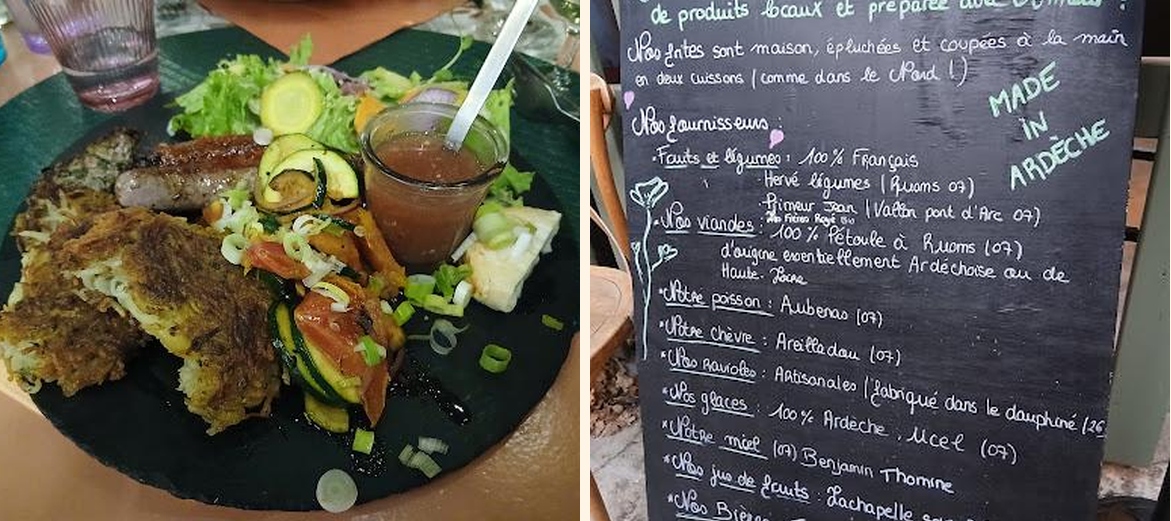 de produits locaux et préparée avec
Nos frites sont maison, épluchées et coupées à la main
en deux cuissons (comme dans le Nord !)
MADE
iN
ARDÈCHE
Nos fournisseurs :
• Fruits et légumes : 100% Français
Hervé légumes (Ruoms 07)
Primeur Jean (Vallon pont d'Arc 07)
• Nos viandes : 100% Pétoule à Ruoms (07)
d'origine essentiellement Ardéchoise ou de
Haute-Loire
• Notre poisson : Aubenas (07)
* Notre chèvre : Areilladou (07)
* Nos ravioles : Artisanales (fabriqué dans le dauphiné (26
* Nos glaces : 100% Ardèche, Ucel (07)
* Notre miel (07) Benjamin Thomine
* Nos jus de fruits : Lachapelle
* Nos Bières